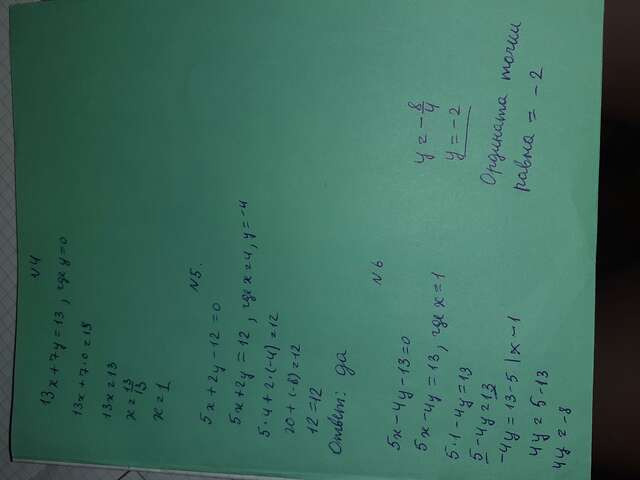 N4
13x + 7y = 13, где y = 0
13x + 7·0 = 13
13x = 13
x = 13/13
x = 1
N5.
5x + 2y - 12 = 0
5x + 2y = 12, где x = 4, y = -4
5·4 + 2·(-4) = 12
20 + (-8) = 12
12 = 12
Ответ: да
N6
5x - 4y - 13 = 0
5x - 4y = 13, где x = 1
5·1 - 4y = 13
5 - 4y = 13
-4y = 13 - 5 | x - 1
4y = 5 - 13
4y = -8
y = -8/4
y = -2
Ордината точки
равна = -2